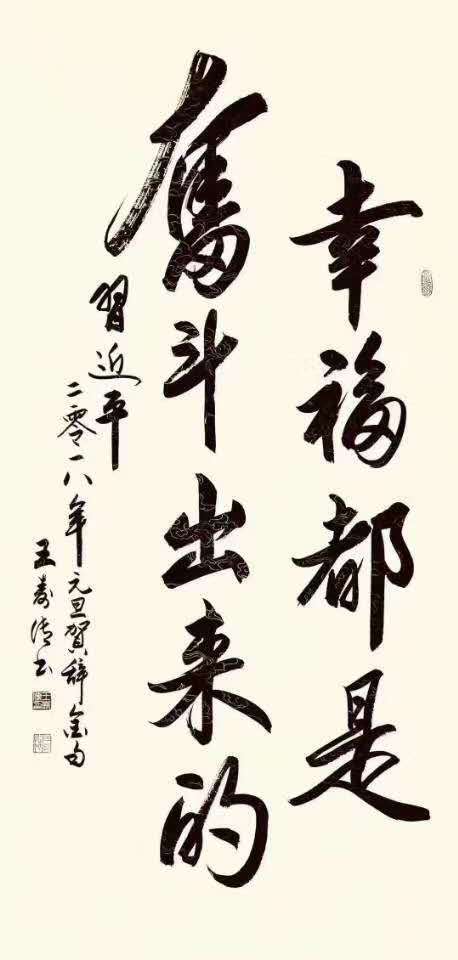 幸福都是
奮斗出来的
習近平
二零一八年元旦賀辞金句
王寿清书